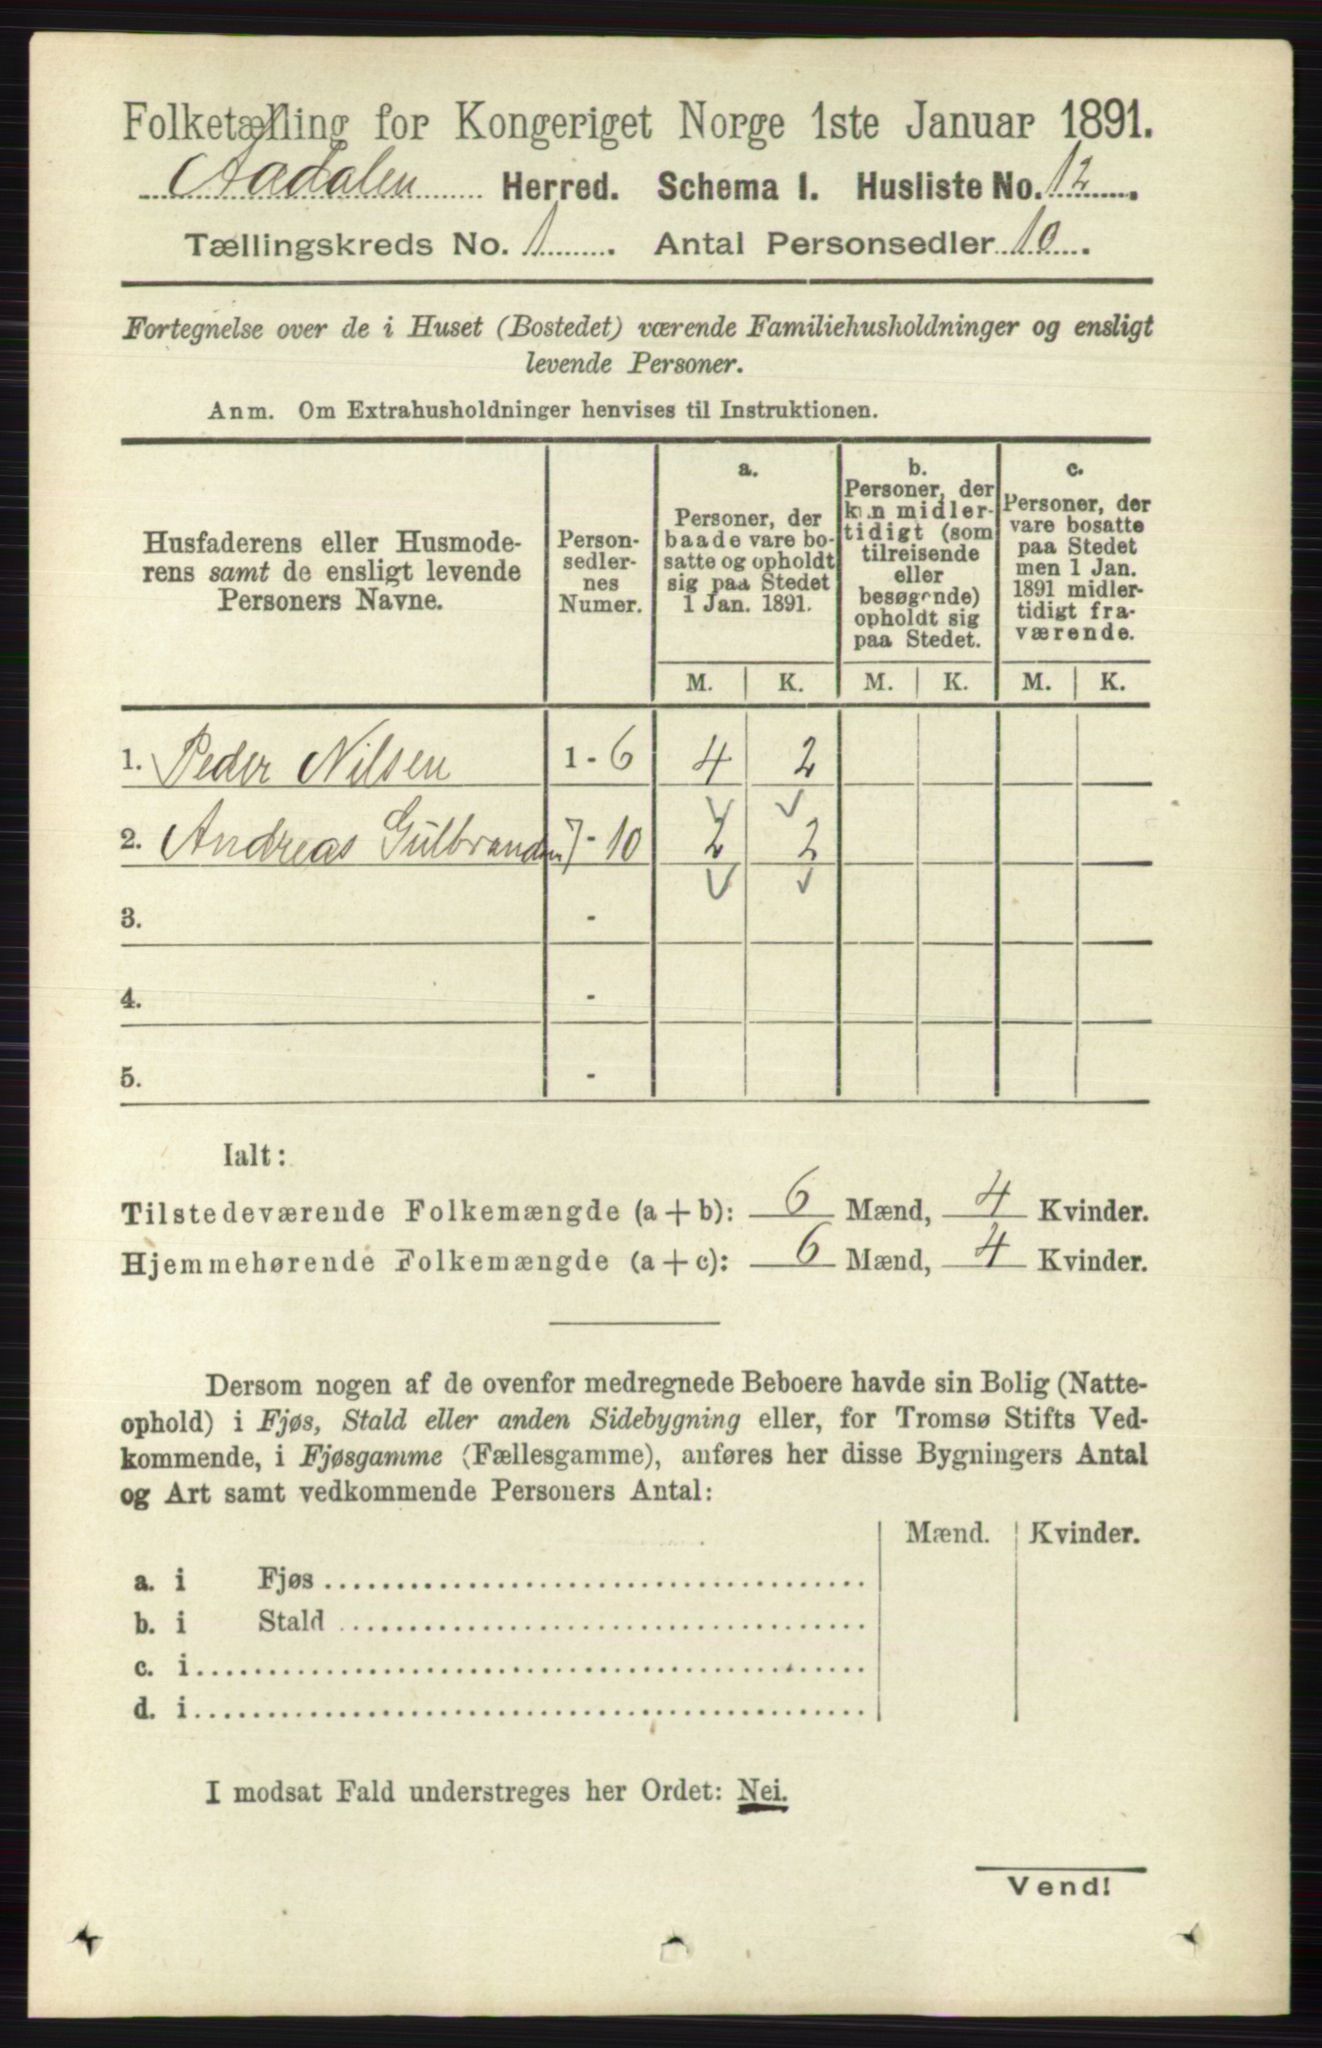 Folketælling for Kongeriget Norge 1ste Januar 1891.
Aadalen Herred. Schema I. Husliste No. 12.
Tællingskreds No. 1. Antal Personsedler 10.
Fortegnelse over de i Huset (Bostedet) værende Familiehusholdninger og ensligt
levende Personer.
Anm. Om Extrahusholdninger henvises til Instruktionen.
Husfaderens eller Husmode-
rens samt de ensligt levende
Personers Navne.
Person-
sedler-
nes
Numer.
a.
Personer, der
baade vare bo-
satte og opholdt
sig paa Stedet
1 Jan. 1891.
b.
Personer, der
kun midler-
tidigt (som
tilreisende
eller
besøgende)
opholdt sig
paa Stedet.
c.
Personer, der
vare bosatte
paa Stedet
men 1 Jan.
1891 midler-
tidigt fra-
værende.
M. K. M. K. M. K.
1. Peder Nilsen 1-6 4 2
2. Andreas Gulbrandsen 7-10 2 2
3. -
4. -
5. -
Ialt:
Tilstedeværende Folkemængde (a + b): 6 Mænd, 4 Kvinder.
Hjemmehørende Folkemængde (a + c): 6 Mænd, 4 Kvinder.
Dersom nogen af de ovenfor medregnede Beboere havde sin Bolig (Natte-
ophold) i Fjøs, Stald eller anden Sidebygning eller, for Tromsø Stifts Ved-
kommende, i Fjøsgamme (Fællesgamme), anføres her disse Bygningers Antal
og Art samt vedkommende Personers Antal:
Mænd. Kvinder.
a. i Fjøs
b. i Stald
c. i
d. i
I modsat Fald understreges her Ordet: Nei.
Vend!